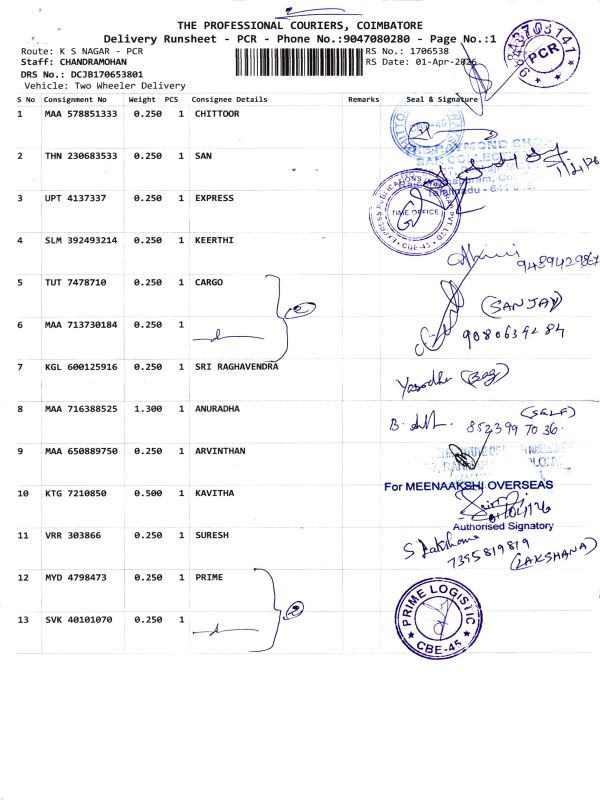 THE PROFESSIONAL COURIERS, COIMBATORE
Delivery Runsheet - PCR - Phone No.:9047080280 - Page No.:1
Route: K S NAGAR - PCR RS No.: 1706538
Staff: CHANDRAMOHAN RS Date: 01-Apr-2026
DRS No.: DCJB170653801
Vehicle: Two Wheeler Delivery
PCR
S No Consignment No Weight PCS Consignee Details Remarks Seal & Signature
1 MAA 578851333 0.250 1 CHITTOOR
CBE-45
2 THN 230683533 0.250 1 SAN
1/4/26
3 UPT 4137337 0.250 1 EXPRESS
TIME OFFICE
CBE-45
4 SLM 392493214 0.250 1 KEERTHI
9489429867
5 TUT 7478710 0.250 1 CARGO
(SANJAY)
6 MAA 713730184 0.250 1
9080639284
7 KGL 600125916 0.250 1 SRI RAGHAVENDRA
Yasodha (Bag)
8 MAA 716388525 1.300 1 ANURADHA
(SELF)
8523997036
9 MAA 650889750 0.250 1 ARVINTHAN
For MEENAAKSHI OVERSEAS
10 KTG 7210850 0.500 1 KAVITHA
Authorised Signatory
11 VRR 303866 0.250 1 SURESH
S Lakshana
7395819819
(LAKSHANA)
12 MYD 4798473 0.250 1 PRIME
PRIME LOGISTIC
CBE-45
13 SVK 40101070 0.250 1